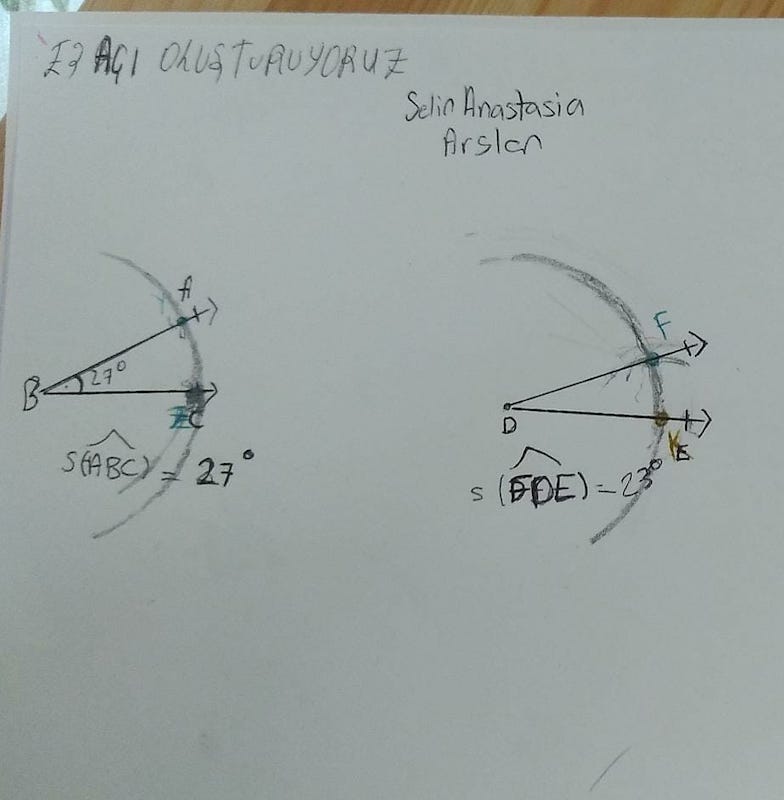 EŞ AÇI OLUŞTURUYORUZ
Selin Anastasia
Arslan
A
Y
B
27°
Z C
s(ABC) = 27°
F
D
K E
s(FDE) = 23°